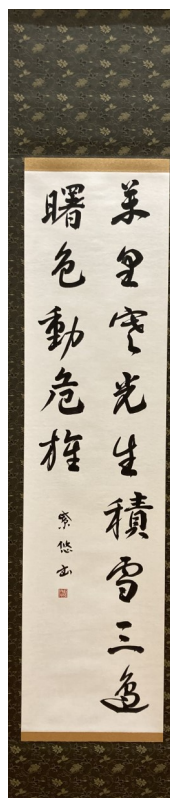 萬里寒光生積雪三邊
曙色動危旌
悠書